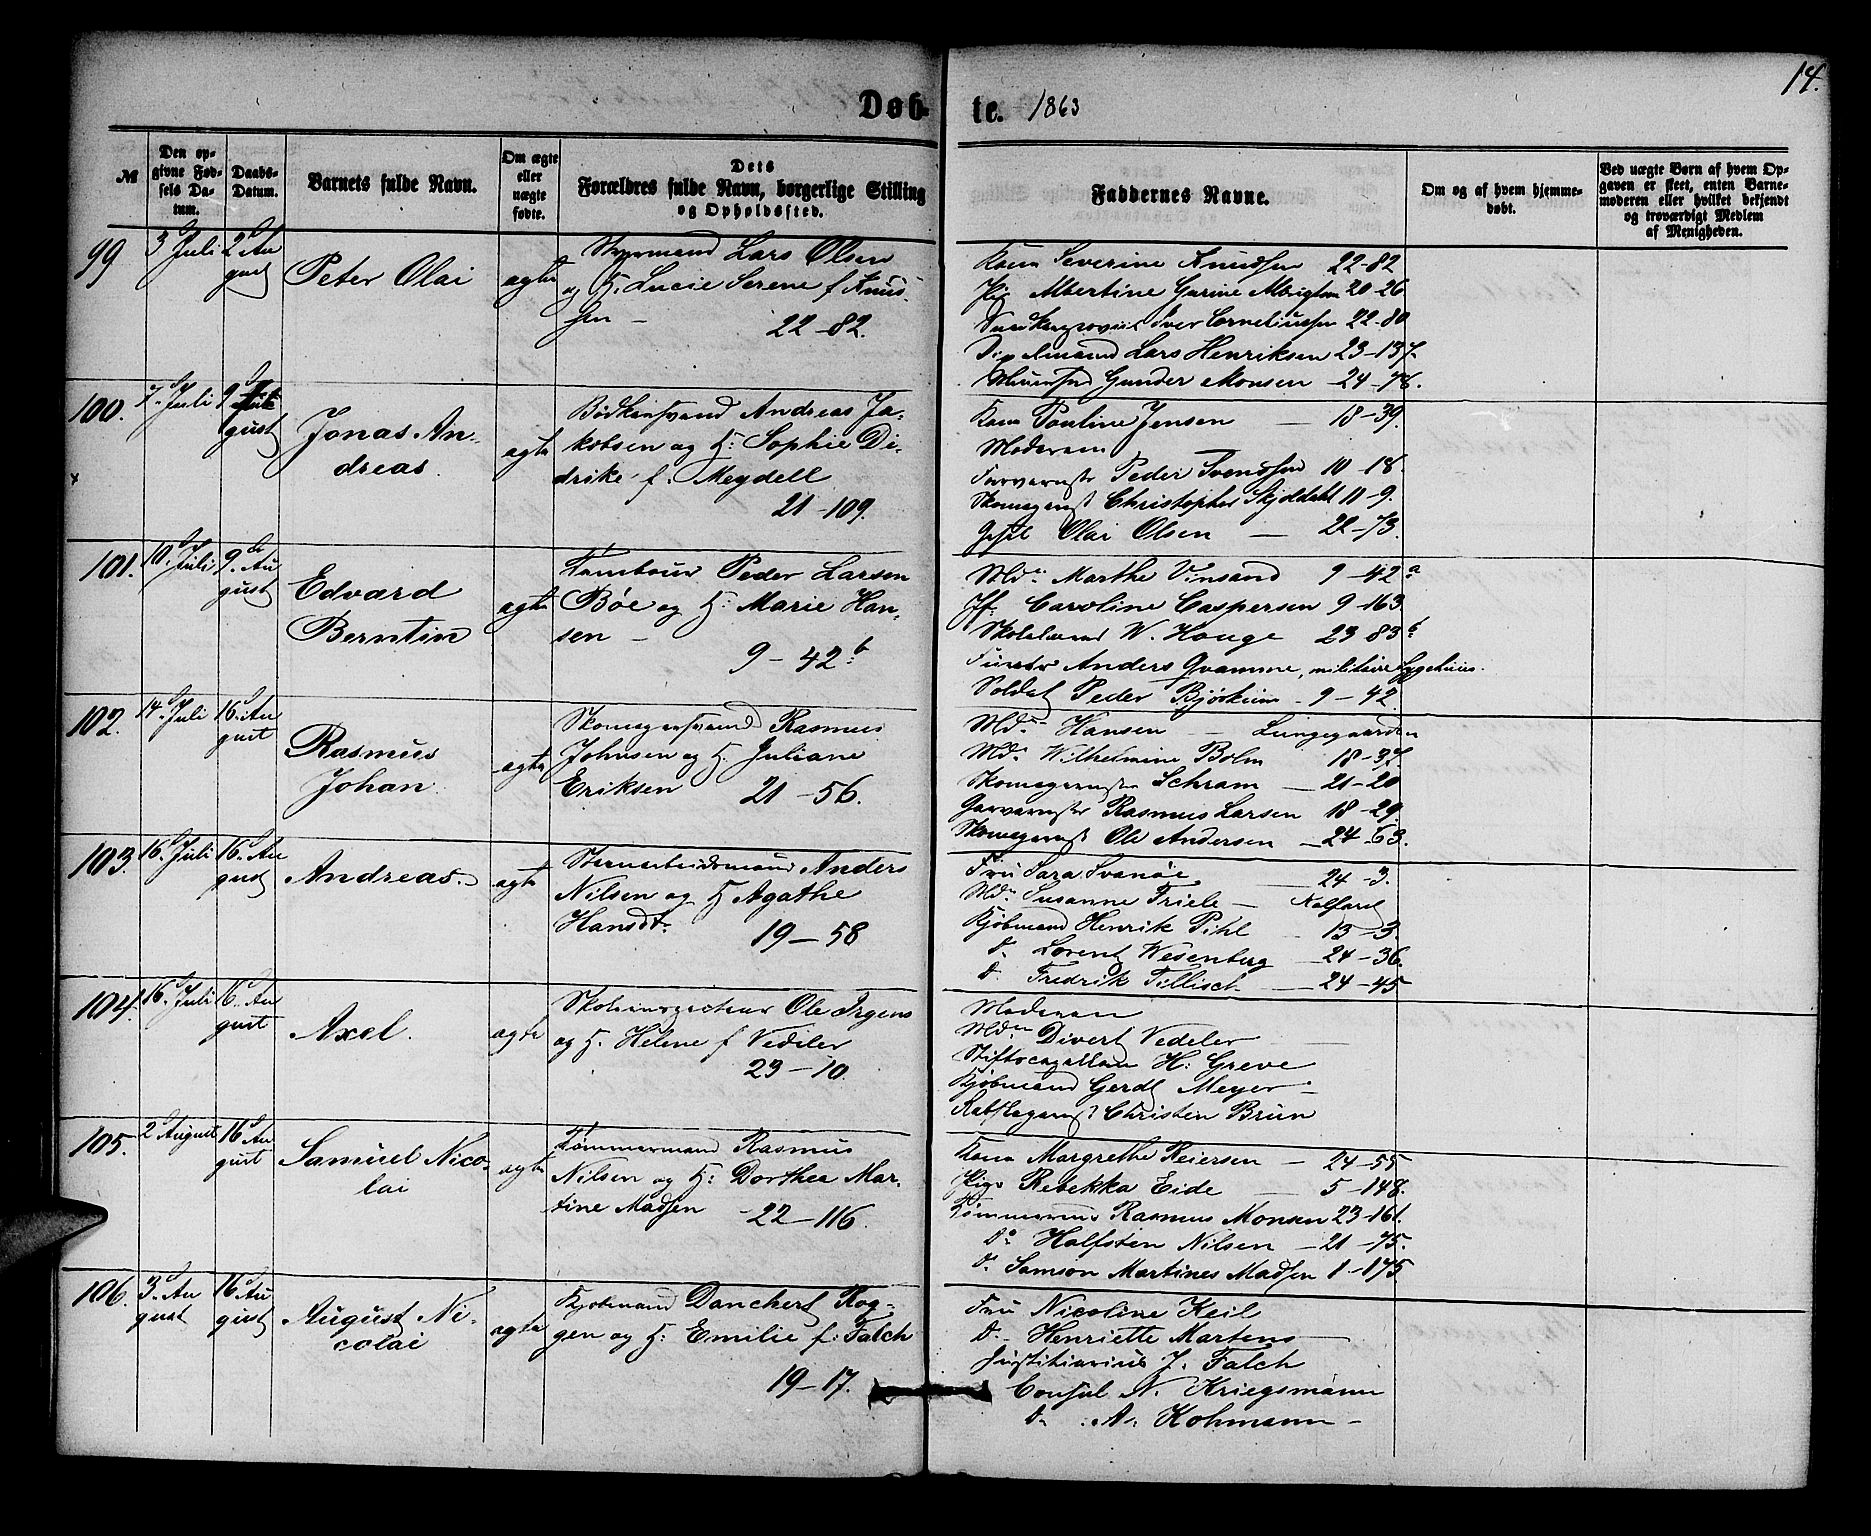 14.
Døb-te. 1863
№
Den opgivne Fødsels Datum.
Daabs-Datum.
Barnets fulde Navn.
Om ægte eller uægte født.
Dets Forældres fulde Navn, borgerlige Stilling og Opholdssted.
Faddernes Navne.
Om og af hvem hjemmedøbt.
Ved uægte Børn af hvem Opgaven er skeet, enten Barnemoderen eller hvilket bekjendt og troværdigt Medlem af Menigheden.
99 3 Juli 2 August
Peter Olai
ægte
Styrmand Lars Olsen
og H. Lucie Serene f. Knud-
sen – 22–82.
Kone Severine Knudsen 22–82
Pige Albertine Gurine Albrigtsen 20–26
Iver Corneliussen 22–80
Lars Henriksen 23–137.
Gunder Monsen – 24–78.
100. 7. Juli 9 August
Jonas An-
dreas.
ægte
Bødkersvend Andreas Ja-
kobsen og H: Sophie Di-
drike f. Meydell
21–109.
Kone Pauline Jensen – 18–39.
Moderen
Peder Svendsen 10–18.
Skomagermst Christopher Skjoldahl 11–9.
Olai Olsen – 22–73.
101. 10. Juli 9. August
Edvard
Berntin
ægte
Tambour Peder Larsen
Bøe og H: Marie Han-
sen –
9–42 b
Md. Marthe Vinsand 9–42 a
Jf. Caroline Caspersen 9–163
Skolelærer W. Houge 23–83 b
Anders Qvamme, militaire Sygehuus.
Soldat Peder Bjørheim 9–42
102. 14. Juli 16. August
Rasmus
Johan
ægte
Skomagersvend Rasmus
Johnsen og H. Juliane
Eriksen 21–56.
Md. Hansen – Lungegaarden
Md. Wilhelmine Bolm 18–37.
Skomagermstr Schram – 21–20
Garvermstr Rasmus Larsen 18–29.
Skomagermst Ole Andersen – 24–63.
103. 16. Juli 16. August
Andreas.
ægte
Steenarbeidsmand Anders
Nilsen og H Agathe
Hansdt. 19–58
Fru Sara Svanøe – 24–3.
Md. Susanne Friele – Kalfaret
Kjøbmand Henrik Pihl – 13–3.
d. Lorent Wesenberg – 24–36.
d. Fredrik Tillisch – 24–45
104. 16. Juli 16. August
Axel.
ægte
Skoleinspecteur Ole Irgens
og H. Helene f Vedeler
23–10.
Moderen
Md. Divert Vedeler
Stiftscapellan H. Greve
Kjøbmand Gerdt Meyer
Christen Brun
105. 2 August 16 August
Samuel Nico-
lai
ægte
Tømmermand Rasmus
Nilsen og H: Dorthea Mar-
tine Madsen 22–116.
Kone Margrethe Reiersen – 24–55
Pige Rebekka Eide – 5–148.
Tømmermd Rasmus Monsen 23–161.
Do Halfsten Nilsen – 21–75.
d. Samson Martines Madsen 1–175.
106. 3. August 16 August
August Ni-
colai
ægte
Kjøbmand Danchert Rog-
gen og H: Emilie f. Falch
19–17.
Fru Nicoline Keil
D. Henriette Martens
Justitiarius J. Falch
Consul N. Kriegsmann
d. A. Kohmann –